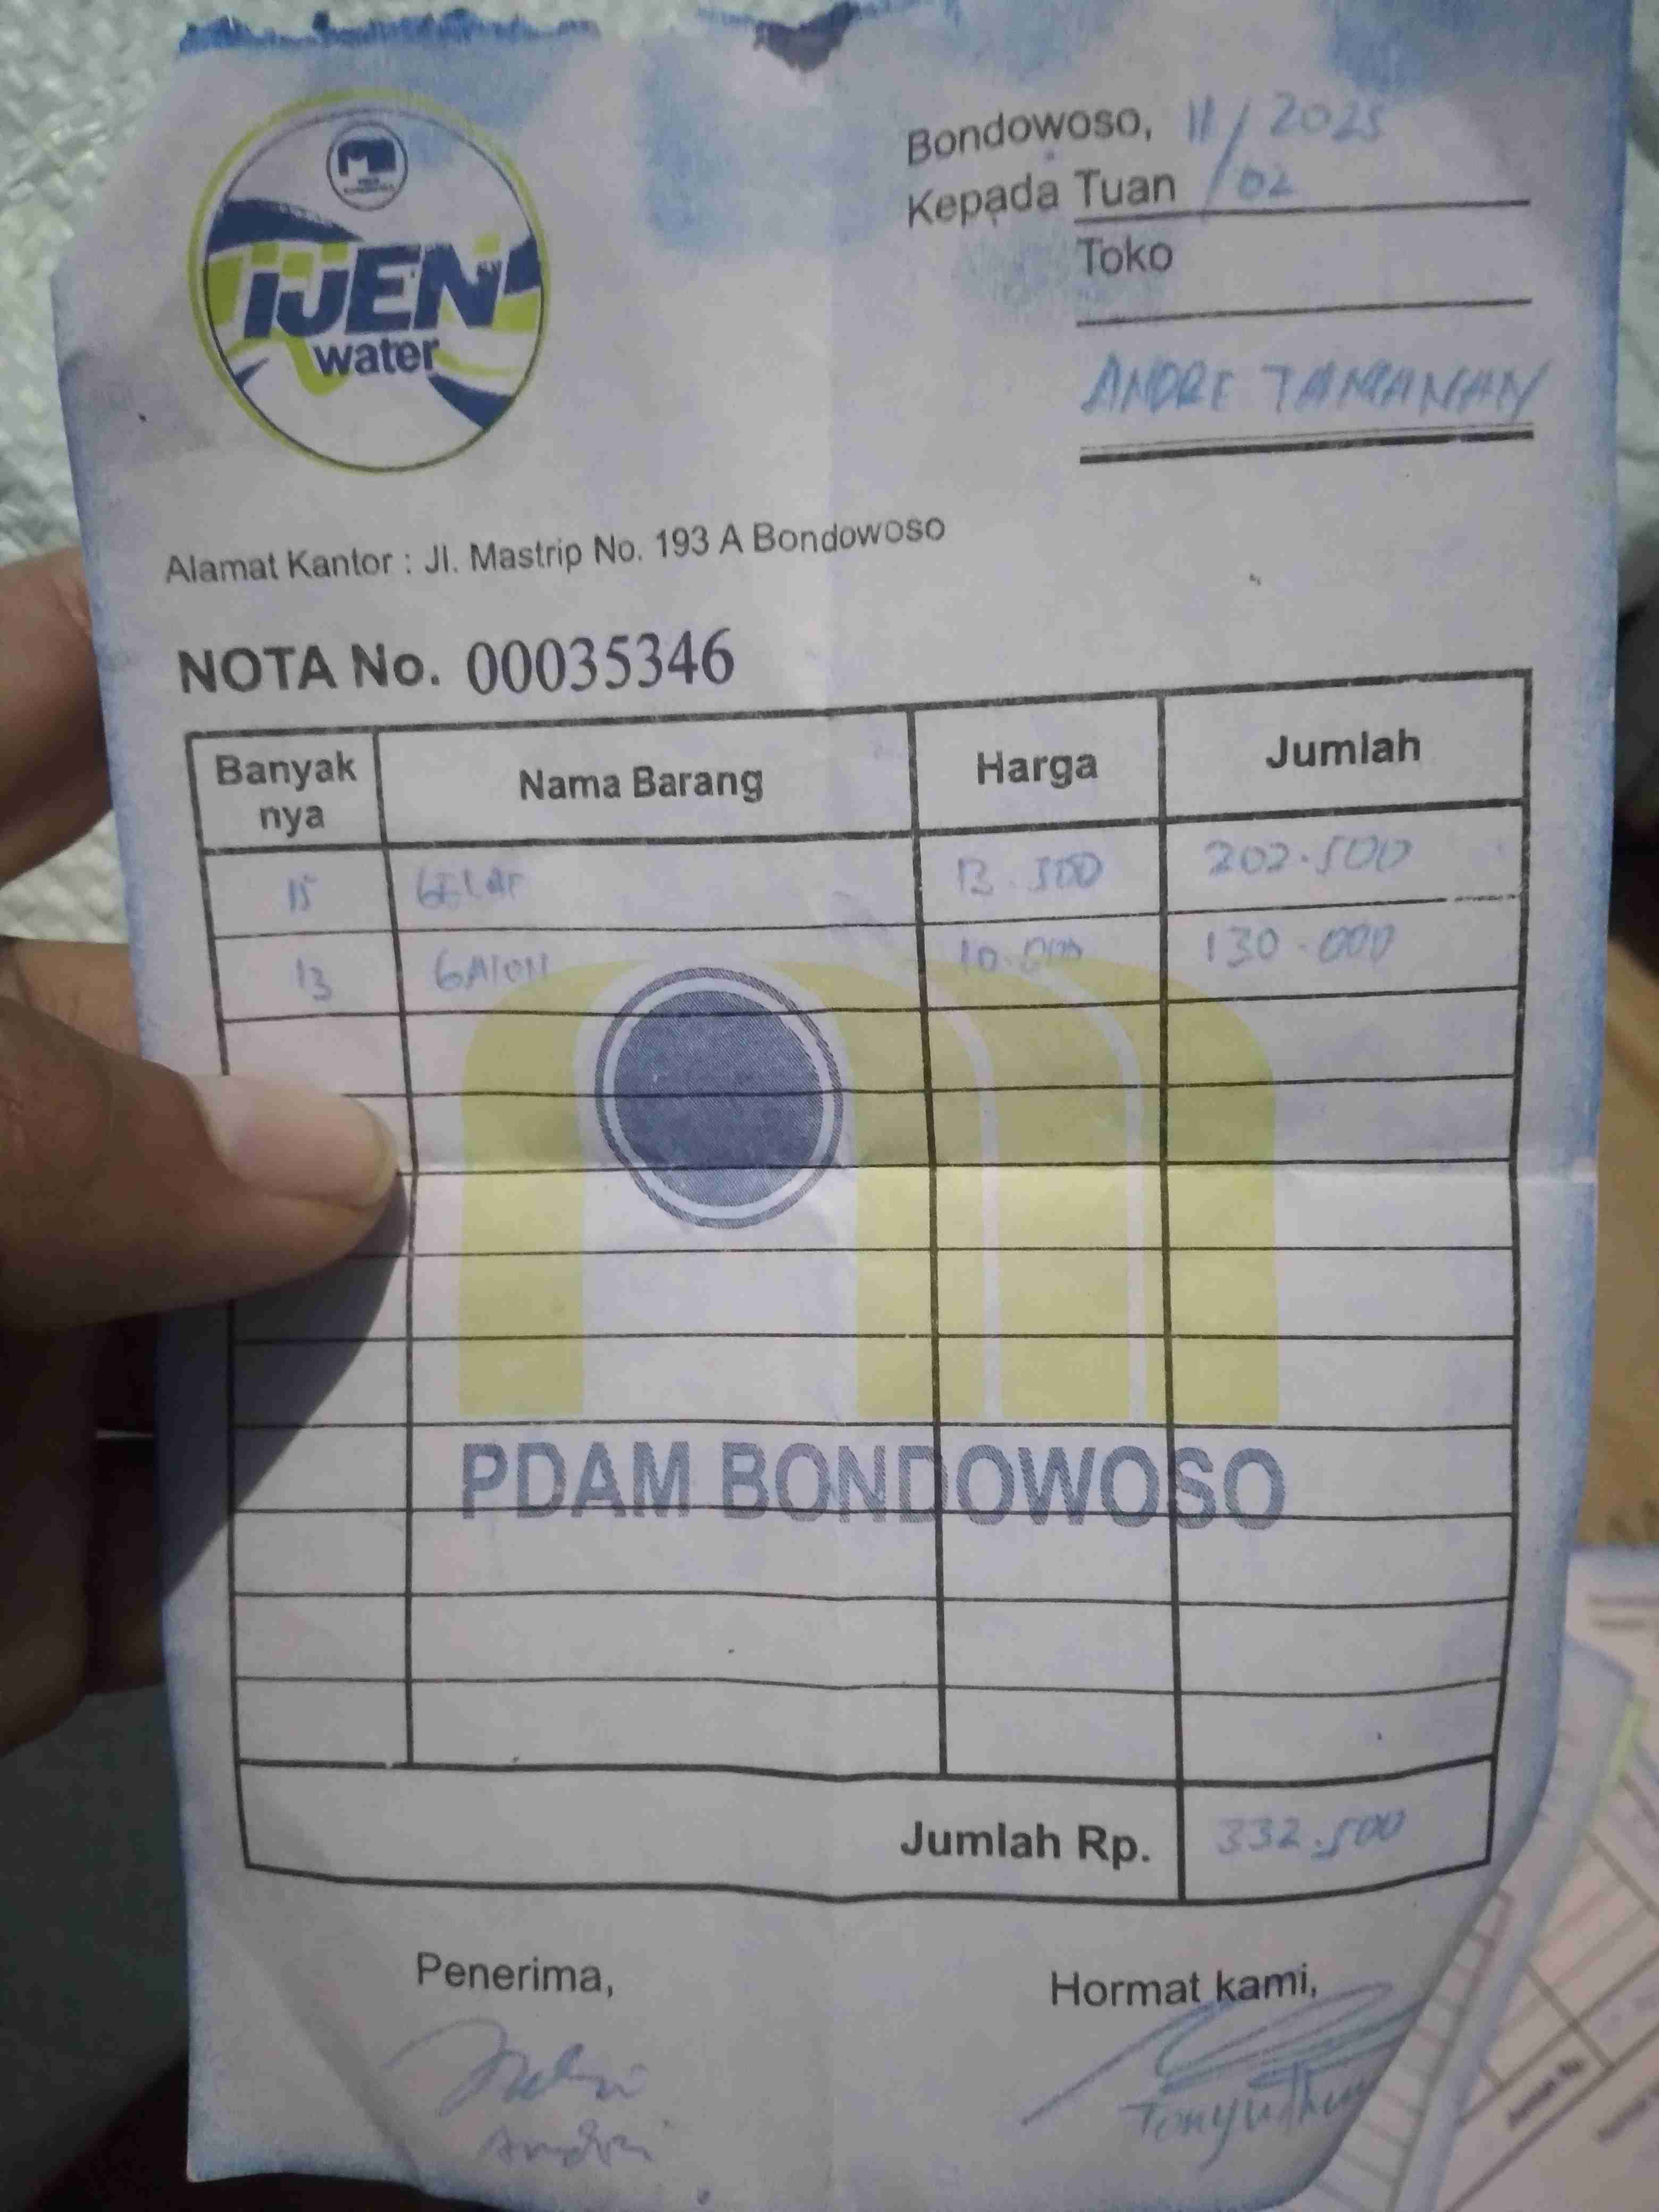 IJEN
water
Bondowoso, 11/02/2025
Kepada Tuan
Toko
ANDRE TAMANAN
Alamat Kantor : Jl. Mastrip No. 193 A Bondowoso
NOTA No. 00035346
Banyak nya Nama Barang Harga Jumlah
15 GELAS 13.500 202.500
13 GALON 10.000 130.000
PDAM BONDOWOSO
Jumlah Rp. 332.500
Penerima, Hormat kami,